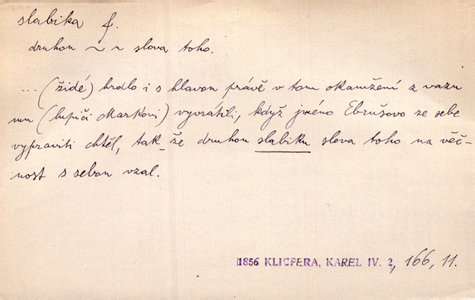 slabika f.
druhou ~ ~ slova toho.
... (židé) hrdlo i s hlavou právě v tom okamžení z vazu
mu (lupiči Markovi) vyvrátili, když jméno Ebrušovo ze sebe
vypraviti chtěl, tak že druhou slabiku slova toho na věč-
nost s sebou vzal.
1856 KLICPERA, KAREL IV. 2, 166, 11.